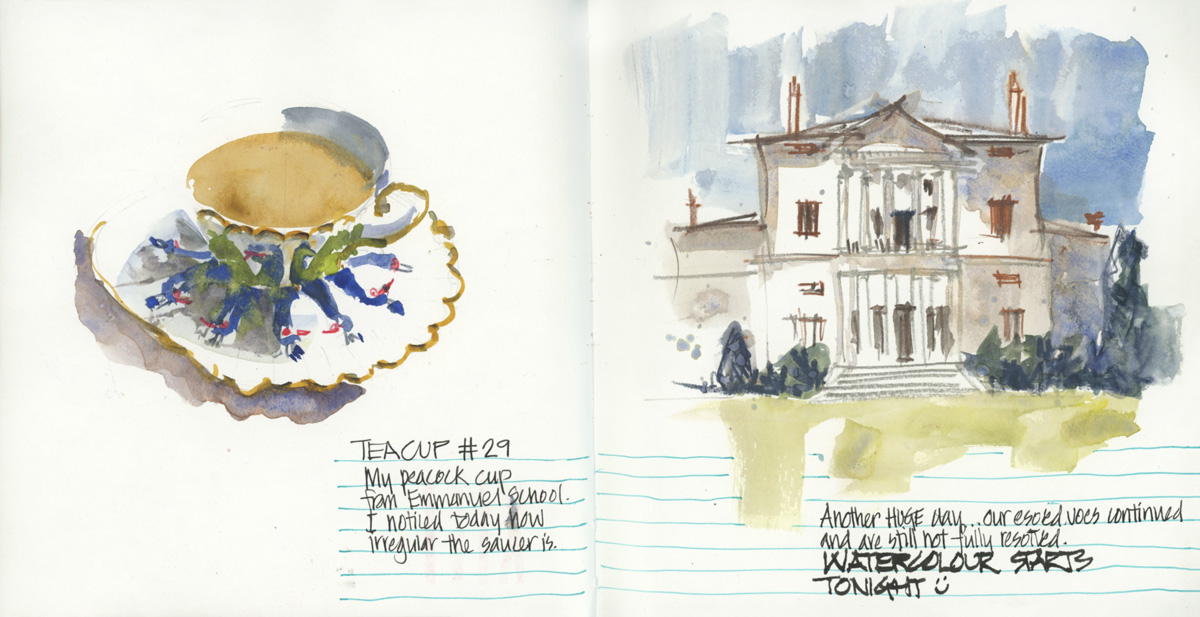 TEACUP #29
My peacock cup
from Emmanuel School.
I noticed today how
irregular the saucer is.
Another HUGE day... our voes continued
and are still not fully resolved.
WATERCOLOUR STARTS
TONIGHT